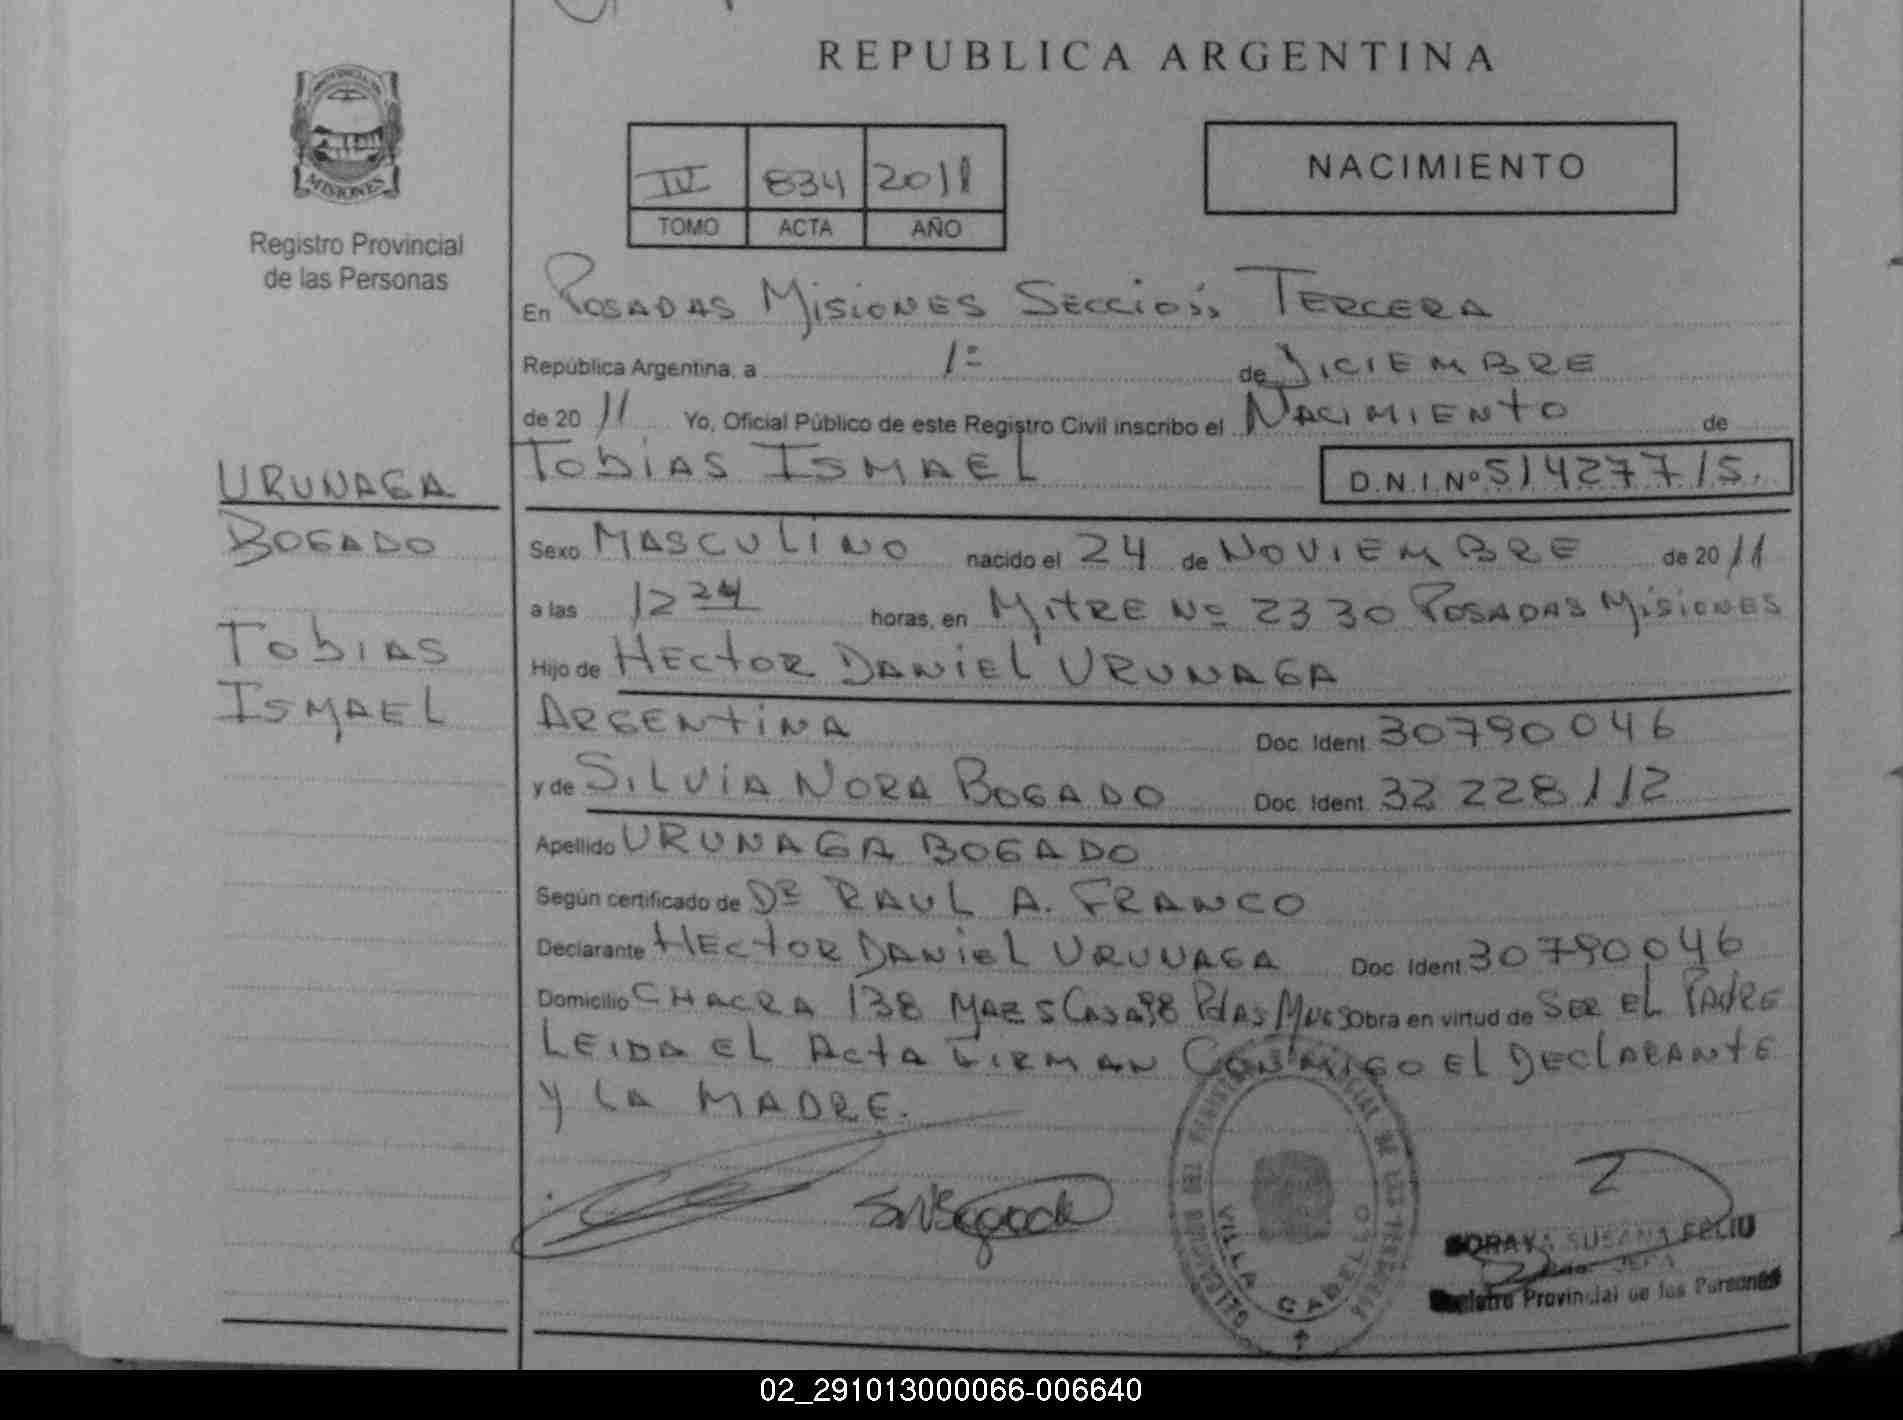 REPUBLICA ARGENTINA
PROVINCIA DE
MISIONES
Registro Provincial
de las Personas
IV 834 2011
TOMO ACTA AÑO
NACIMIENTO
En POSADAS MISIONES SECCIÓN TERCERA
República Argentina, a 1º de DICIEMBRE
de 20 11 Yo, Oficial Público de este Registro Civil inscribo el NACIMIENTO de
TOBIAS ISMAEL D.N.I. Nº 51427715.
URUNAGA
BOGADO
TOBIAS
ISMAEL
Sexo MASCULINO nacido el 24 de NOVIEMBRE de 20 11
a las 12 24 horas, en MITRE Nº 2330 POSADAS MISIONES
Hijo de HECTOR DANIEL URUNAGA
ARGENTINA Doc. Ident. 30790046
y de SILVIA NORA BOGADO Doc. Ident. 32 228112
Apellido URUNAGA BOGADO
Según certificado de Dr RAUL A. FRANCO
Declarante HECTOR DANIEL URUNAGA Doc. Ident. 30790046
Domicilio CHACRA 138 CASA 98 Pdas Mnes Obra en virtud de SER EL PADRE
LEIDA EL ACTA FIRMAN CONMIGO EL DECLARANTE
Y LA MADRE.
VILLA CABELLO
SORAYA SUSANA FELIU
JEFA
Registro Provincial de las Personas
02_291013000066-006640